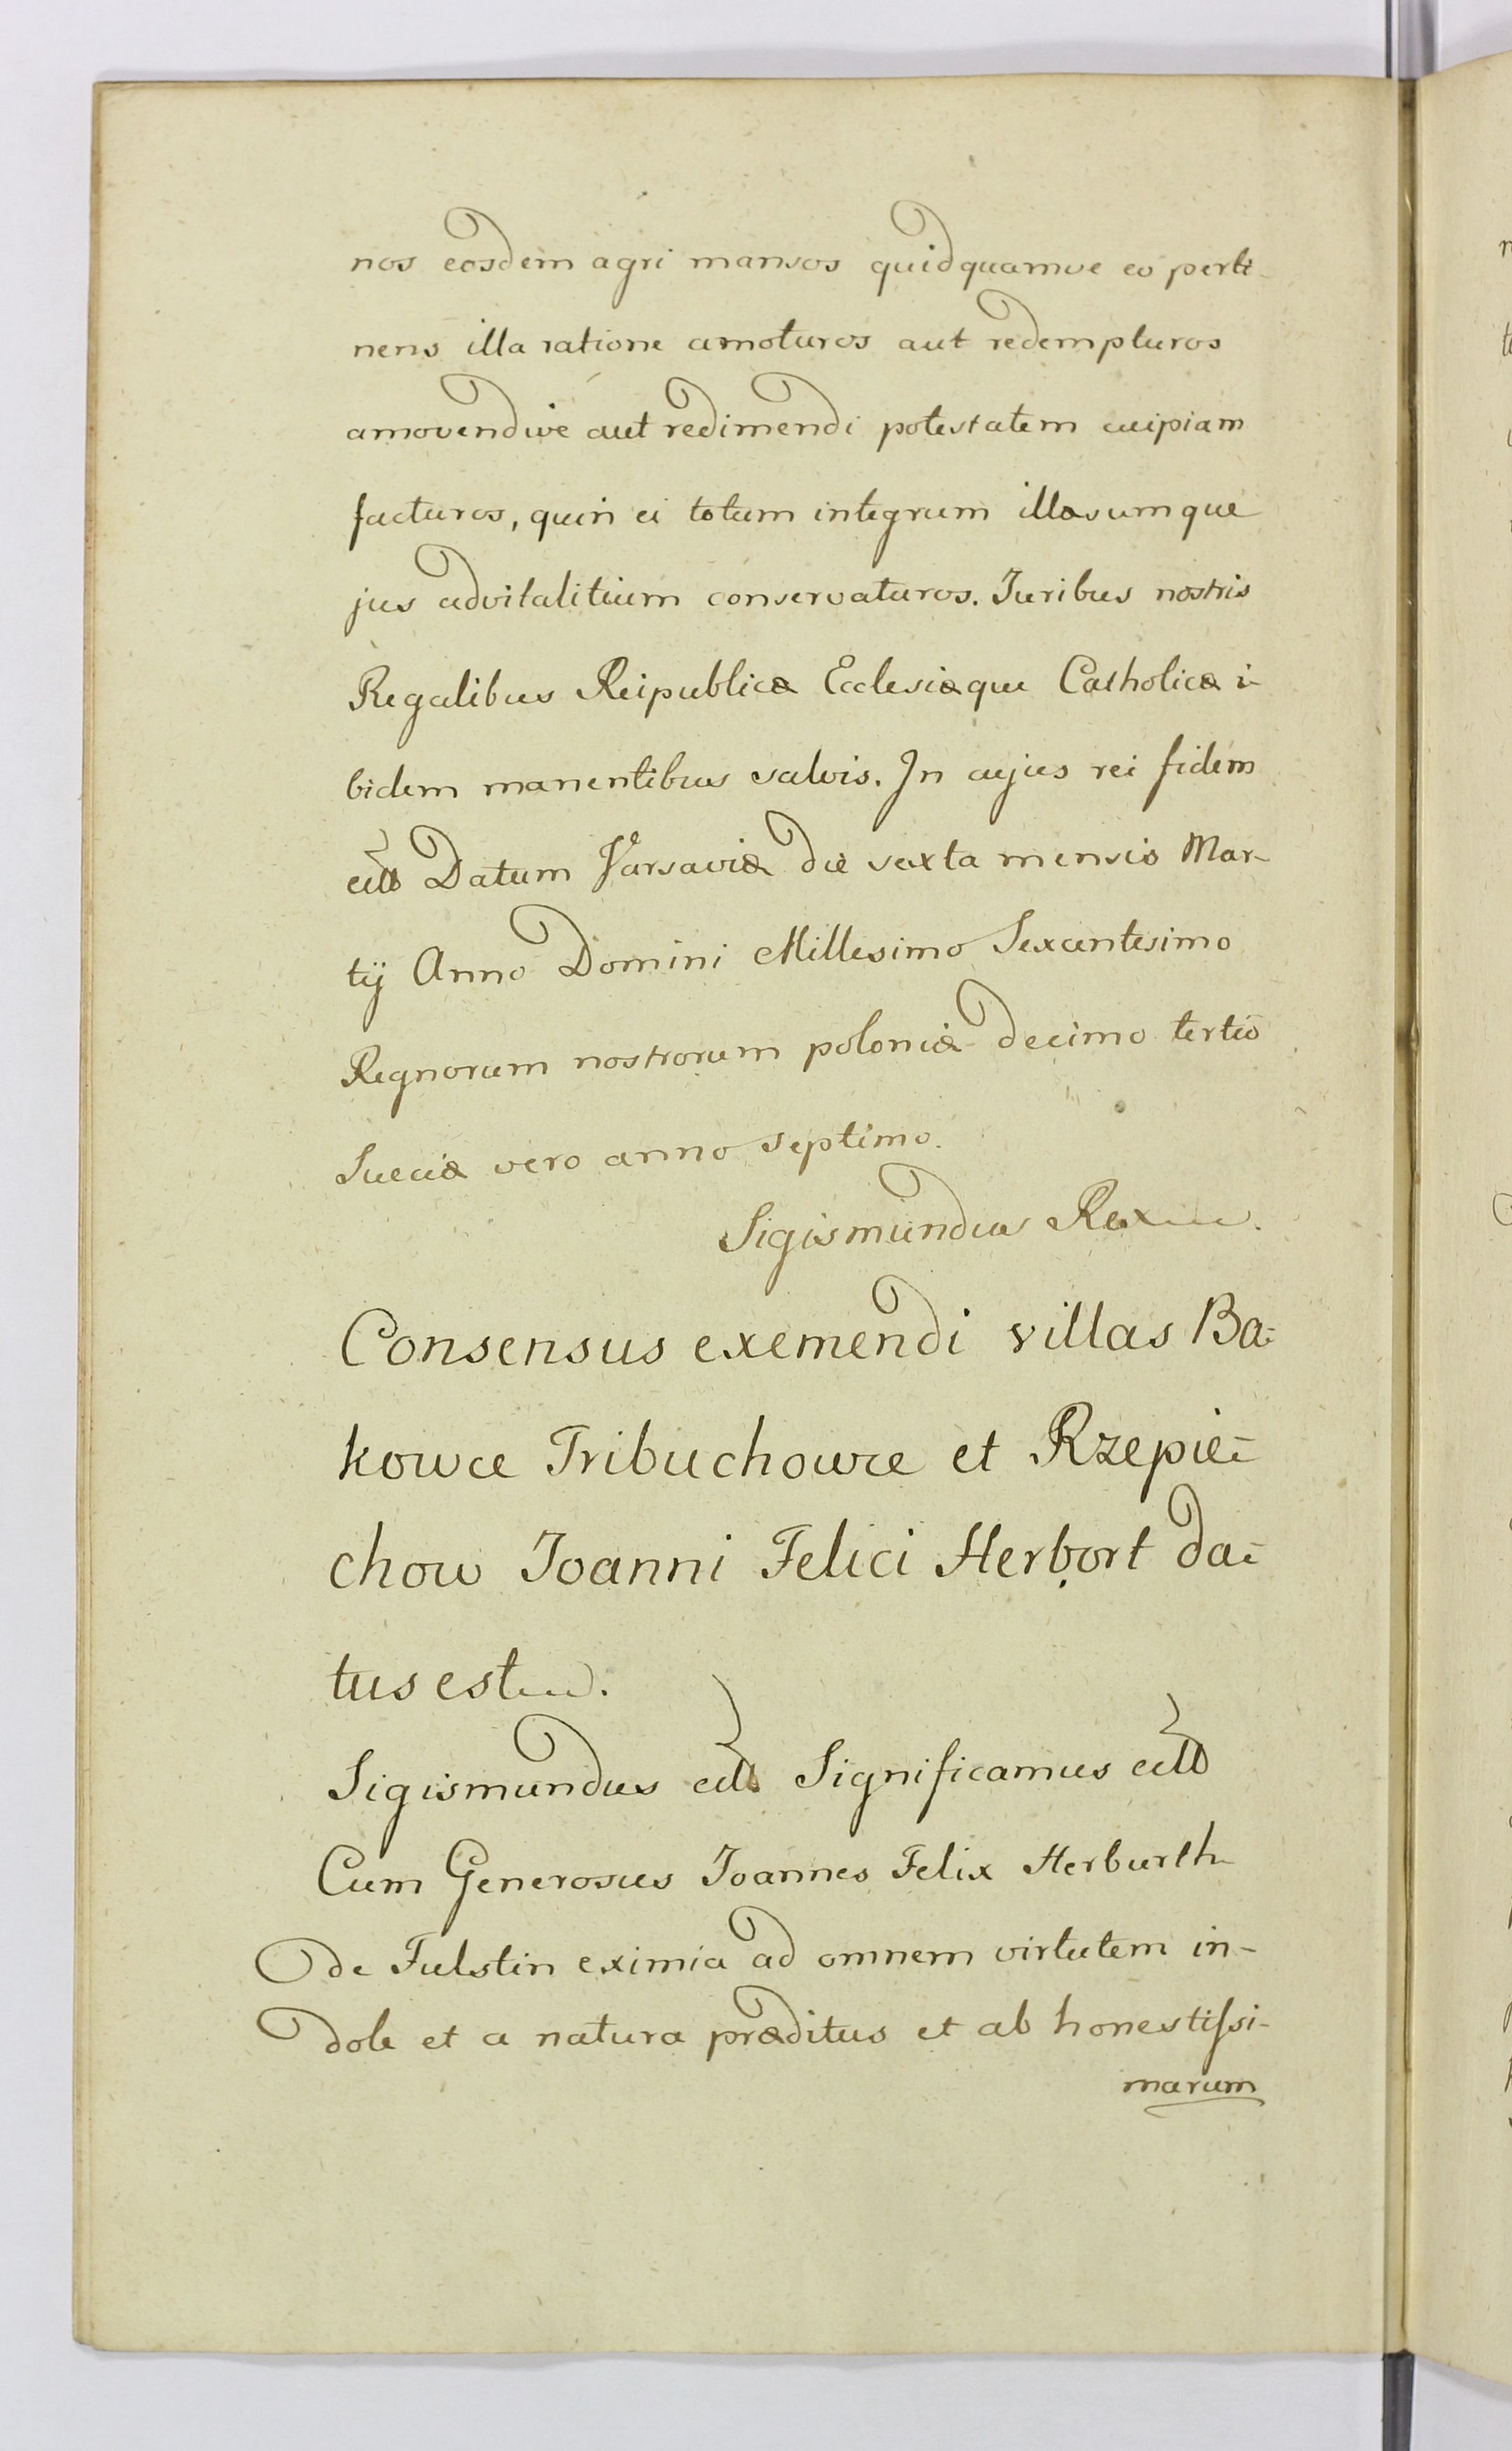 nos eosdem agri mansos quidquamve eo perti-
nens illa ratione amoturos aut redempturos
amovendive aut redimendi potestatem cuipiam
facturos, quin ei totum integrum illæsumque
jus advitalitium conservaturos. Juribus nostris
Regalibus Reipublicæ Ecclesiæque Catholicæ i-
bidem manentibus salvis. In cujus rei fidem
etc Datum Varsaviæ die sexta mensis Mar-
tij Anno Domini Millesimo Sexcentesimo
Regnorum nostrorum poloniæ decimo tertio
Sueciæ vero anno septimo.
Sigismundus Rex
Consensus exemendi villas Ba-
kowce Tribuchowce et Rzepie-
chow Joanni Felici Herbort da-
tus est.
Sigismundus etc Significamus etc
Cum Generosus Joannes Felix Herburth
de Fulstin eximia ad omnem virtutem in-
dole et a natura præditus et ab honestissi-
marum